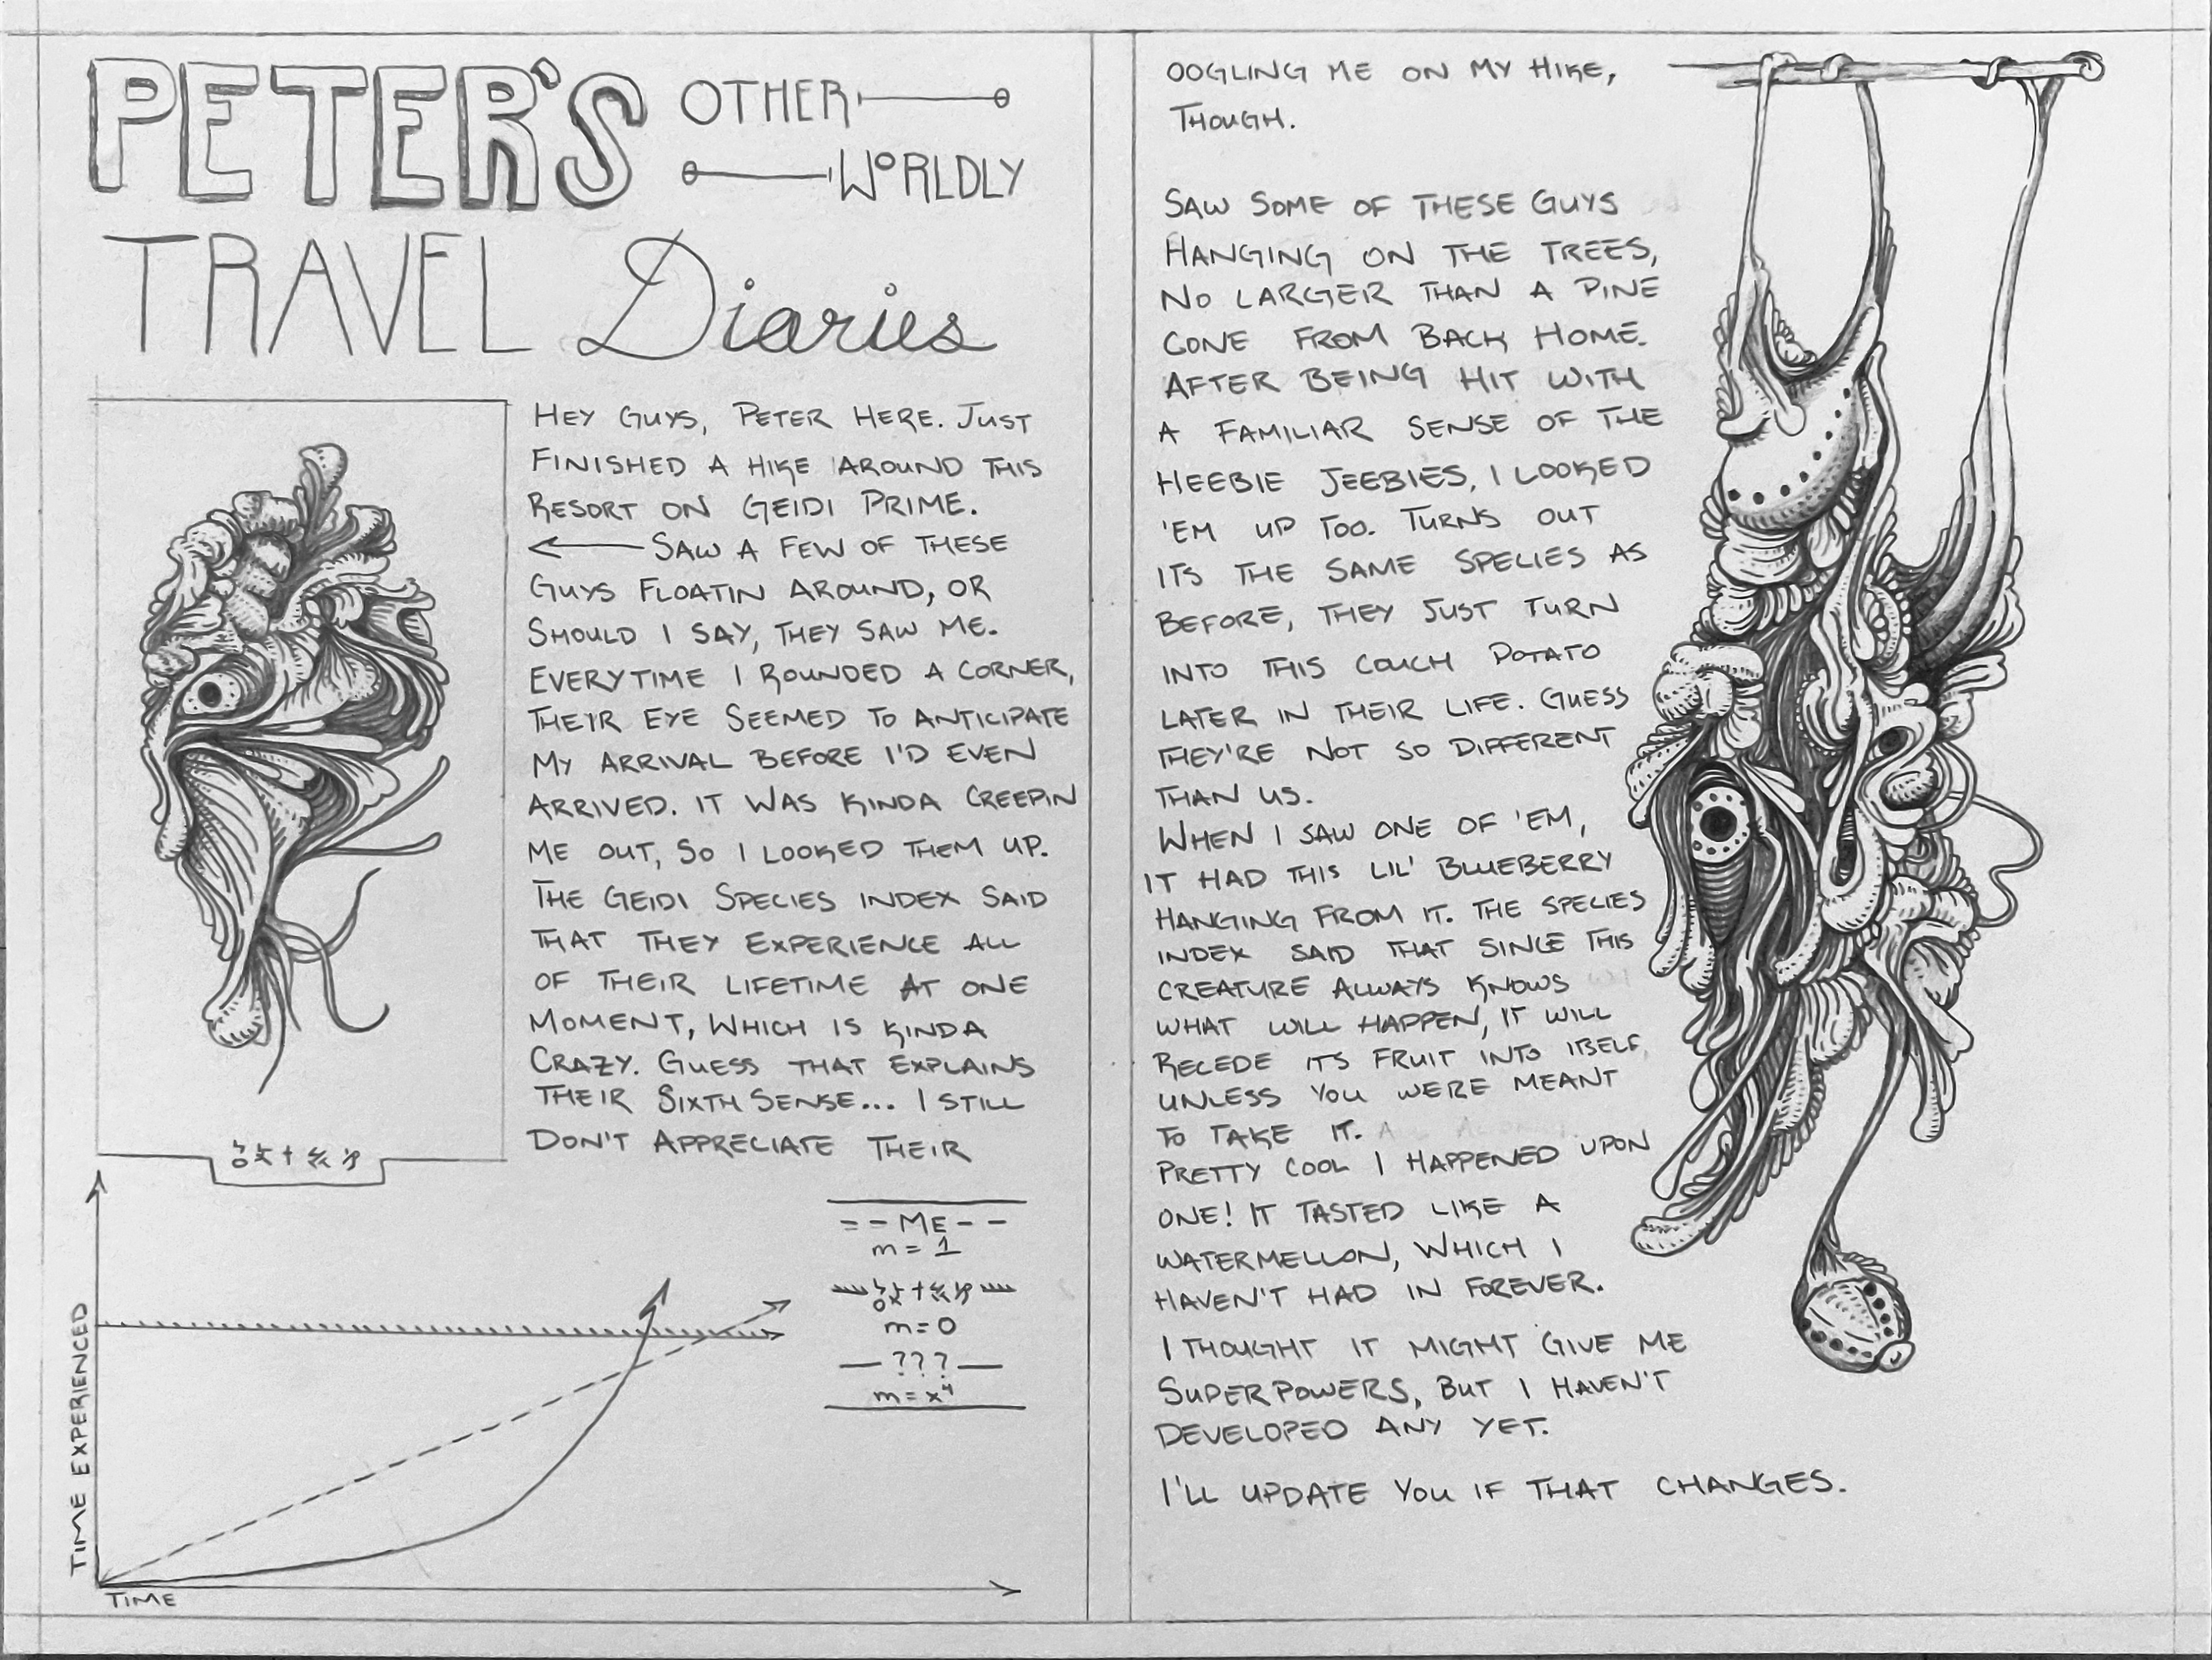 PETER'S OTHER
WORLDLY
TRAVEL Diaries
HEY GUYS, PETER HERE. JUST
FINISHED A HIKE AROUND THIS
RESORT ON GEIDI PRIME.
SAW A FEW OF THESE
GUYS FLOATIN AROUND, OR
SHOULD I SAY, THEY SAW ME.
EVERYTIME I ROUNDED A CORNER,
THEIR EYE SEEMED TO ANTICIPATE
MY ARRIVAL BEFORE I'D EVEN
ARRIVED. IT WAS KINDA CREEPIN
ME OUT, SO I LOOKED THEM UP.
THE GEIDI SPECIES INDEX SAID
THAT THEY EXPERIENCE ALL
OF THEIR LIFETIME AT ONE
MOMENT, WHICH IS KINDA
CRAZY. GUESS THAT EXPLAINS
THEIR SIXTH SENSE... I STILL
DON'T APPRECIATE THEIR
TIME EXPERIENCED
TIME
= - ME - -
m = 1
m = 0
— ??? —
m = x⁴
OOGLING ME ON MY HIKE,
THOUGH.
SAW SOME OF THESE GUYS
HANGING ON THE TREES,
NO LARGER THAN A PINE
CONE FROM BACK HOME.
AFTER BEING HIT WITH
A FAMILIAR SENSE OF THE
HEEBIE JEEBIES, I LOOKED
'EM UP TOO. TURNS OUT
ITS THE SAME SPECIES AS
BEFORE, THEY JUST TURN
INTO THIS COUCH POTATO
LATER IN THEIR LIFE. GUESS
THEY'RE NOT SO DIFFERENT
THAN US.
WHEN I SAW ONE OF 'EM,
IT HAD THIS LIL' BLUEBERRY
HANGING FROM IT. THE SPECIES
INDEX SAID THAT SINCE THIS
CREATURE ALWAYS KNOWS
WHAT WILL HAPPEN, IT WILL
RECEDE ITS FRUIT INTO ITSELF,
UNLESS YOU WERE MEANT
TO TAKE IT.
PRETTY COOL I HAPPENED UPON
ONE! IT TASTED LIKE A
WATERMELLON, WHICH I
HAVEN'T HAD IN FOREVER.
I THOUGHT IT MIGHT GIVE ME
SUPERPOWERS, BUT I HAVEN'T
DEVELOPED ANY YET.
I'LL UPDATE YOU IF THAT CHANGES.